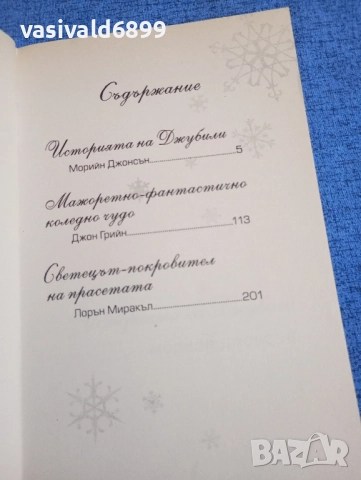 vasivald6899
Съдържание
Историята на Джубили
Морийн Джонсън 5
Мажоретно-фантастично
коледно чудо
Джон Грийн 113
Светецът-покровител
на прасетата
Лорън Миракъл 201
BAZAR
bg